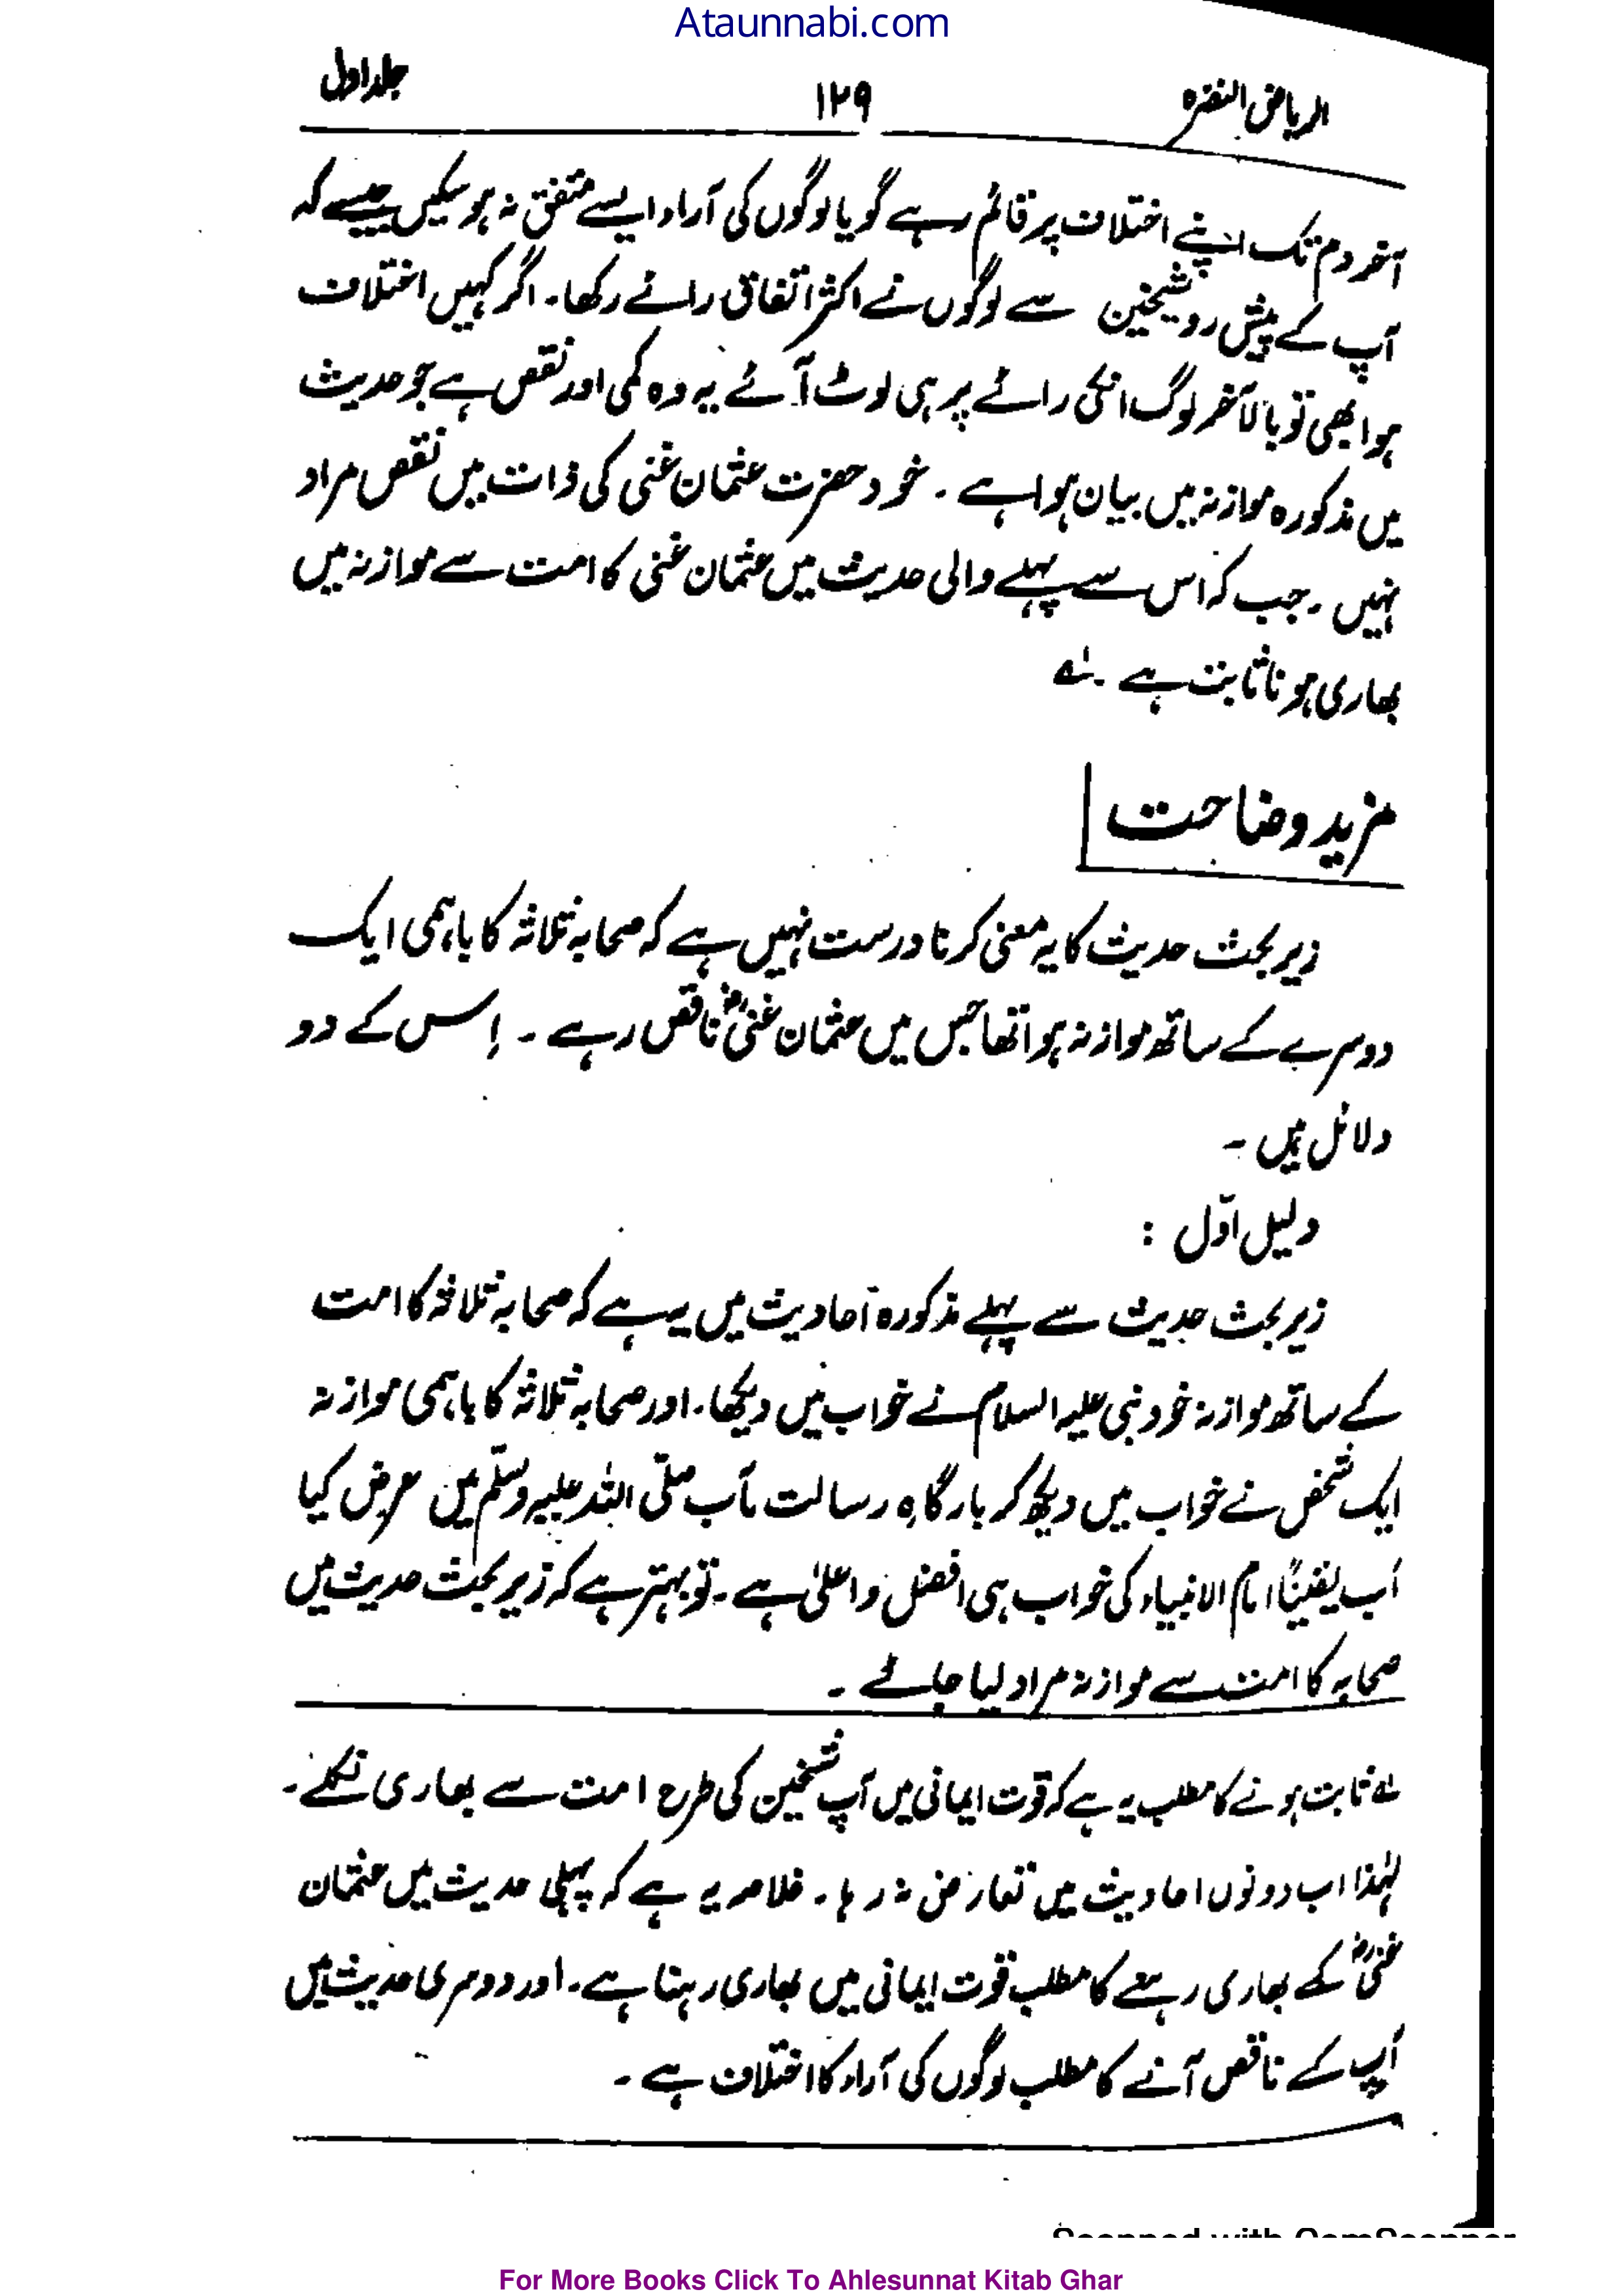 Ataunnabi.com
الریاض النضرہ ۱۲۹ جلد اول
آخر دم تک اپنے اختلاف پر قائم رہے گویا لوگوں کی آراء ایسے متفق نہ ہو سکیں جیسے کہ
آپ کے پیش رو شیخین سے لوگوں نے اکثر اتفاق رائے رکھا۔ اگر کہیں اختلاف
ہوا بھی تو بالآخر لوگ انکی رائے پر ہی لوٹ آئے یہ وہ کمی اور نقص ہے جو حدیث
میں مذکورہ موازنہ میں بیان ہوا ہے ۔ خود حضرت عثمان غنی کی ذات میں نقص مراد
نہیں ۔ جب کہ اس سے پہلے والی حدیث میں عثمان غنی کا امت سے موازنہ میں
بھاری ہونا ثابت ہے ۔ لے
مزید وضاحت
زیر بحث حدیث کا یہ معنی کرنا درست نہیں ہے کہ صحابہ ثلاثہ کا باہمی ایک
دوسرے کے ساتھ موازنہ ہوا تھا جس میں عثمان غنیؓ ناقص رہے ۔ اِس کے دو
دلائل ہیں ۔
دلیل اوّل :
زیر بحث حدیث سے پہلے مذکورہ احادیث میں یہ ہے کہ صحابہ ثلاثہ کا امت
کے ساتھ موازنہ خود نبی علیہ السلام نے خواب میں دیکھا۔ اور صحابہ ثلاثہ کا باہمی موازنہ
ایک شخص نے خواب میں دیکھ کر بارگاہِ رسالت مآب صلّی اللہ علیہ وسلّم میں عرض کیا
اَب یقیناً امام الانبیاء کی خواب ہی افضل و اعلیٰ ہے ۔ تو بہتر ہے کہ زیر بحث حدیث میں
صحابہ کا امت سے موازنہ مراد لیا جائے ۔
لے ثابت ہونے کا مطلب یہ ہے کہ قوت ایمانی میں آپ شیخین کی طرح امت سے بھاری نکلے ۔
لہٰذا اب دونوں احادیث میں تعارض نہ رہا ۔ خلاصہ یہ ہے کہ پہلی حدیث میں عثمان
غنیؓ کے بھاری رہنے کا مطلب قوت ایمانی میں بھاری رہنا ہے ۔ اور دوسری حدیث میں
آپ کے ناقص آنے کا مطلب لوگوں کی آراء کا اختلاف ہے ۔
Scanned with CamScanner
For More Books Click To Ahlesunnat Kitab Ghar